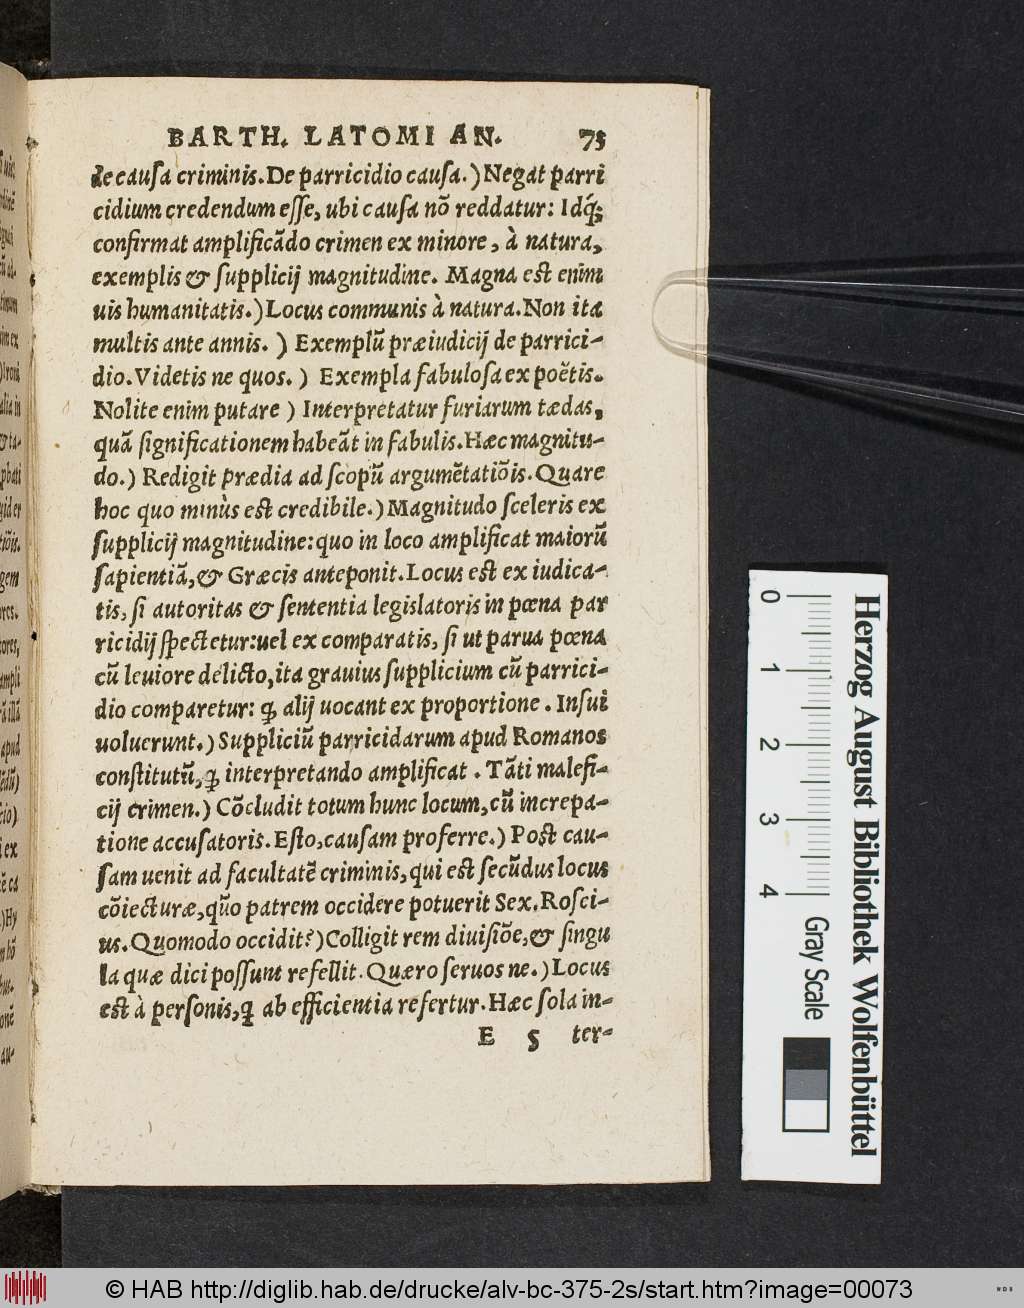 BARTH. LATOMI AN. 75
de causa criminis. De parricidio causa.) Negat parri
cidium credendum esse, ubi causa nō reddatur: Idq́;
confirmat amplificādo crimen ex minore, à natura,
exemplis & supplicij magnitudine. Magna est enim
uis humanitatis.) Locus communis à natura. Non ita
multis ante annis. ) Exemplū præiudicij de parrici-
dio. Videtis ne quos. ) Exempla fabulosa ex poëtis.
Nolite enim putare ) Interpretatur furiarum tædas,
quā significationem habeāt in fabulis. Hæc magnitu-
do.) Redigit prædia ad scopū argumētatiōis. Quare
hoc quo minùs est credibile.) Magnitudo sceleris ex
supplicij magnitudine: quo in loco amplificat maiorū
sapientiā, & Græcis anteponit. Locus est ex iudica-
tis, si autoritas & sententia legislatoris in pœna par
ricidij spectetur: uel ex comparatis, si ut parua pœna
cū leuiore delicto, ita grauius supplicium cū parrici-
dio comparetur: ꝙ alij uocant ex proportione. Insui
uoluerunt.) Suppliciū parricidarum apud Romanos
constitutū, ꝙ interpretando amplificat. Tāti malefi-
cij crimen.) Cōcludit totum hunc locum, cū increpa-
tione accusatoris. Esto, causam proferre.) Post cau-
sam uenit ad facultatē criminis, qui est secūdus locus
cōiecturæ, quō patrem occidere potuerit Sex. Rosci-
us. Quomodo occidit?) Colligit rem diuisiōe, & singu
la quæ dici possunt refellit. Quæro seruos ne.) Locus
est à personis, ꝙ ab efficientia refertur. Hæc sola in-
E 5 ter-
0 1 2 3 4
Gray Scale
Herzog August Bibliothek Wolfenbüttel
© HAB http://diglib.hab.de/drucke/alv-bc-375-2s/start.htm?image=00073